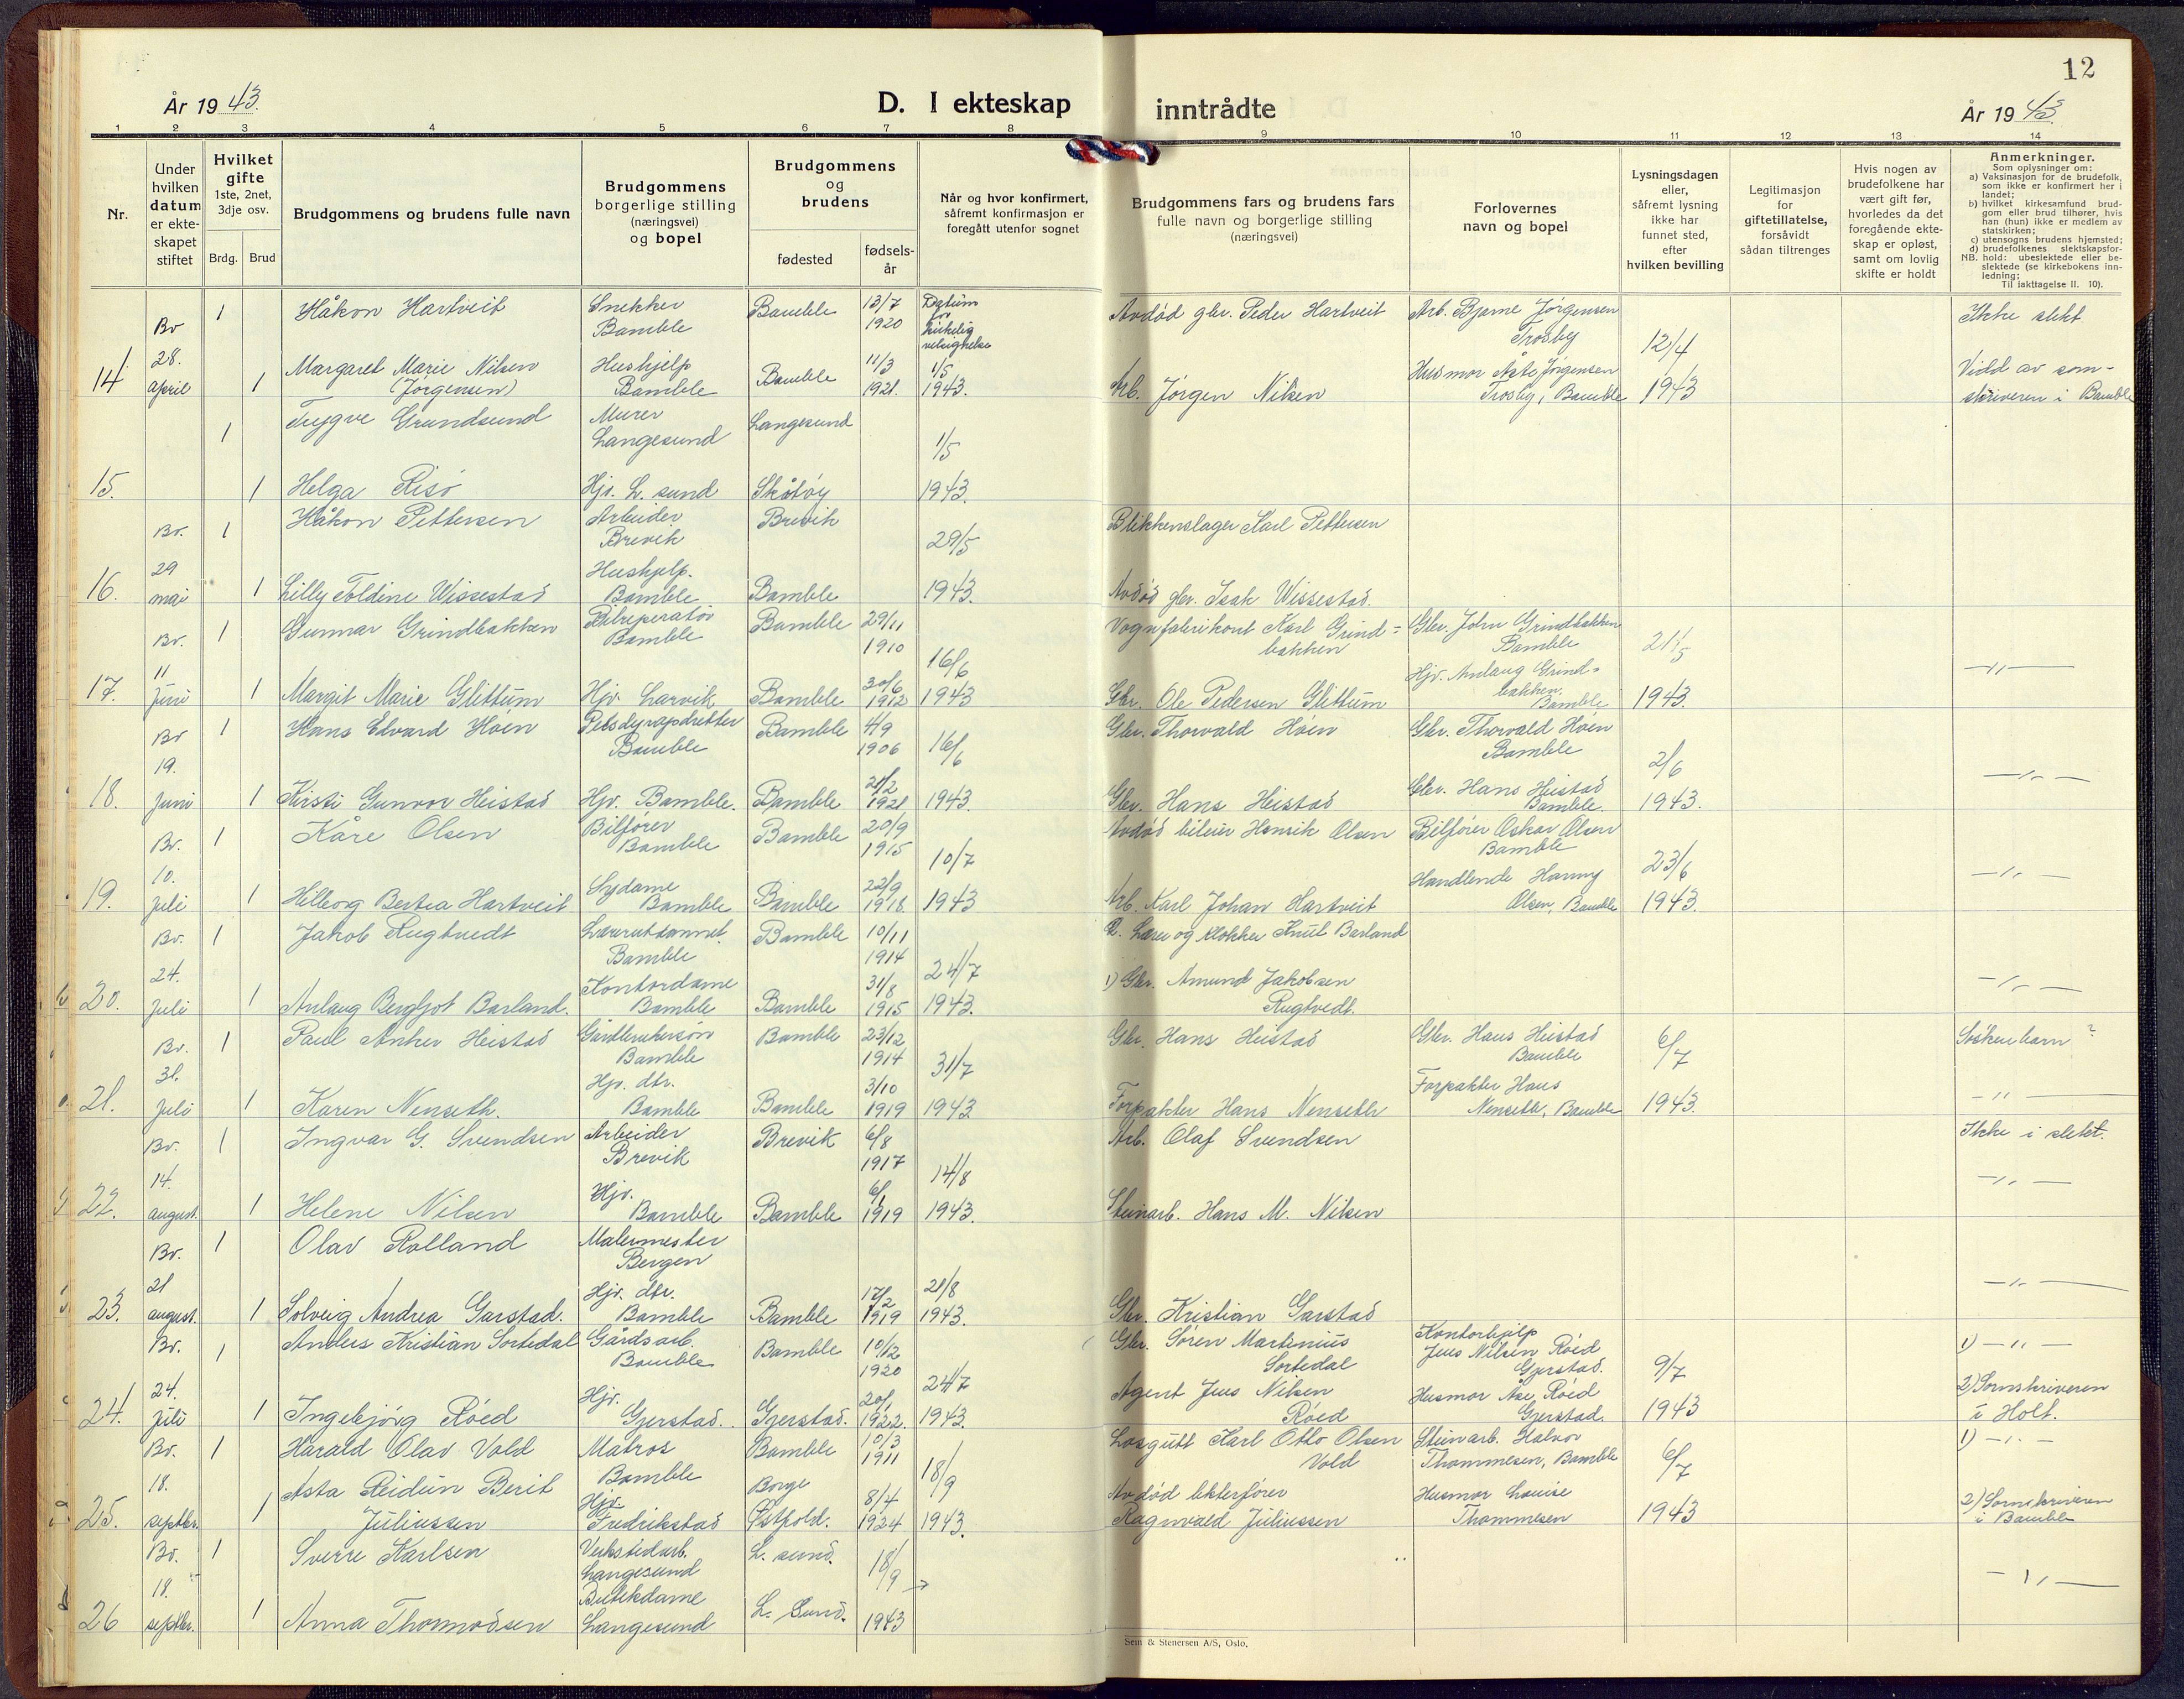 12
År 1943.
D. I ekteskap inntrådte
År 1943.
1 2 3 4 5 6 7 8 9 10 11 12 13 14
Nr.
Under hvilken datum er ekteskapet stiftet
Hvilket gifte 1ste, 2net, 3dje osv.
Brdg. Brud
Brudgommens og brudens fulle navn
Brudgommens borgerlige stilling (næringsvei) og bopel
Brudgommens og brudens
fødested
fødselsår
Når og hvor konfirmert, såfremt konfirmasjon er foregått utenfor sognet
Brudgommens fars og brudens fars fulle navn og borgerlige stilling (næringsvei)
Forlovernes navn og bopel
Lysningsdagen eller, såfremt lysning ikke har funnet sted, efter hvilken bevilling
Legitimasjon for giftetillatelse, forsåvidt sådan tiltrenges
Hvis nogen av brudefolkene har vært gift før, hvorledes da det foregående ekteskap er opløst, samt om lovlig skifte er holdt
Anmerkninger.
Som oplysninger om:
a) Vaksinasjon for de brudefolk, som ikke er konfirmert her i landet;
b) hvilket kirkesamfund brudgom eller brud tilhører, hvis han (hun) ikke er medlem av statskirken;
c) utensogns brudens hjemsted;
d) brudefolkenes slektskapsforhold: ubeslektede eller beslektede (se kirkebokens innledning;
NB.
Til iakttagelse II. 10).
Bv 1 Håkon Hartveit Snekker Bamble Bamble 13/7 1920 Datum for kirkelig velsignelse Avdød gbr. Peder Hartveit Arb. Bjarne Jørgensen Trosby 12/4 Ikke slekt
14 28. april 1 Margaret Marie Nilsen (Jørgensen) Hushjelp Bamble Bamble 11/3 1921. 1/5 1943. Arb. Jørgen Nilsen Husmor Jørgensen Trosby, Bamble 1943 Vidd av sorenskriveren i Bamble
1 Trygve Grundsund Murer Langesund Langesund 1/5
15. 1 Helga Risø Hjv. L. sund Skåtøy 1943.
Bv. 1 Håkon Pettersen Arbeider Brevik Brevik 29/5 Blikkenslager Karl Pettersen
16. 29 mai 1 Lilly Toldine Wissestad Hushjelp. Bamble Bamble 1943. Avdød gbr. Isak Wissestad.
Bv. 1 Gunnar Grindbakken Bilreparatør Bamble Bamble 29/11 1910 16/6 Vognfabrikant Karl Grindbakken Gbr. John Grindbakken Bamble 21/5
17. 11 Juni 1 Margit Marie Glittum Hjv. Larvik Bamble 30/6 1912 1943 Gbr. Ole Pedersen Glittum Hjv. Anlaug Grindbakken. Bamble 1943. —"—
Bv 1 Hans Edvard Hoen Pelsdyropdretter Bamble Bamble 4/9 1906 16/6 Gbr. Thorvald Hoen Gbr. Thorvald Hoen Bamble 2/6
18. 19. Juni 1 Kirsti Gunvor Heistad Hjv. Bamble. Bamble 21/2 1921 1943. Gbr. Hans Heistad Gbr. Hans Heistad Bamble. 1943. —"—
Bv. 1 Kåre Olsen Bilfører Bamble Bamble 20/9 1915 10/7 Avdød bileier Henrik Olsen Bilfører Oskar Olsen Bamble 23/6
19. 10. Juli 1 Hilborg Bertea Hartveit Sydame Bamble Bamble 22/9 1918. 1943 Arb. Karl Johan Hartveit Handlende Hanny Olsen, Bamble 1943. —"—
Bv. 1 Jakob Rugtvedt Lærerutdannet. Bamble Bamble 10/11 1914 24/7 2. Lærer og klokker Knut Barland
20. 24. Juli 1 Anlaug Bergljot Barland. Kontordame Bamble Bamble 31/8 1915 1943. 1) Gbr. Amund Jakobsen Rugtvedt. —"—
Bv. 1 Paul Anker Heistad Gårdbrukersønn Bamble Bamble 23/12 1914 31/7 Gbr. Hans Heistad Gbr. Hans Heistad Bamble 6/7 Søskenbarn ?
21. 31. Juli 1 Karen Nenseth. Hjv. dtr. Bamble Bamble 3/10 1919 1943. Forpakter Hans Nenseth Forpakter Hans Nenseth, Bamble 1943. —"—
Bv. 1 Ingvar G. Svendsen Arbeider Brevik Brevik 6/8 1917 14/8 Arb. Olaf Svendsen Ikke i slekt.
22. 14. august. 1 Helene Nilsen Hjv. Bamble Bamble 6/1 1919 1943. Steinarb. Hans M. Nilsen —"—
Bv. 1 Olav Rolland Malermester Bergen
23. 21 august. 1 Solveig Andrea Garstad. Hjv. dtr. Bamble Bamble 17/2 1919 21/8 1943. Gbr. Kristian Garstad —"—
Bv. 1 Anders Kristian Sortedal Gårdsarb. Bamble Bamble 10/12 1920 24/7 Gbr. Søren Martinius Sortedal Kontorhjelp Jens Nilsen Røed Gjerstad. 9/7 1) —"—
24. 24. Juli 1 Ingebjørg Røed Hjv. Gjerstad. Gjerstad. 20/1 1922. 1943. Agent Jens Nilsen Røed Husmor Åse Røed Gjerstad. 1943 2) Sornskriveren i Holt.
Bv. 1 Harald Olav Vold Matros Bamble Bamble 10/3 1911 18/9 Losgutt Karl Otto Olsen Vold Steinarb. Halvor Thommesen, Bamble 6/7 1) —"—
25. 18. septbr. 1 Asta Reidun Berit Juliussen Hjv. Fredrikstad Borge Østfold. 8/4 1924 1943. Avdød lekterfører Ragnvald Juliussen Husmor Louise Thommesen 1943 2) Sornskriveren i Bamble
Bv. 1 Sverre Karlsen Verkstedarb. Langesund L. sund. 18/9
26 18. septbr. 1 Anna Thormodsen Butikdame Langesund L. Sund. 1943 —"—
Sem & Stenersen A/S, Oslo.